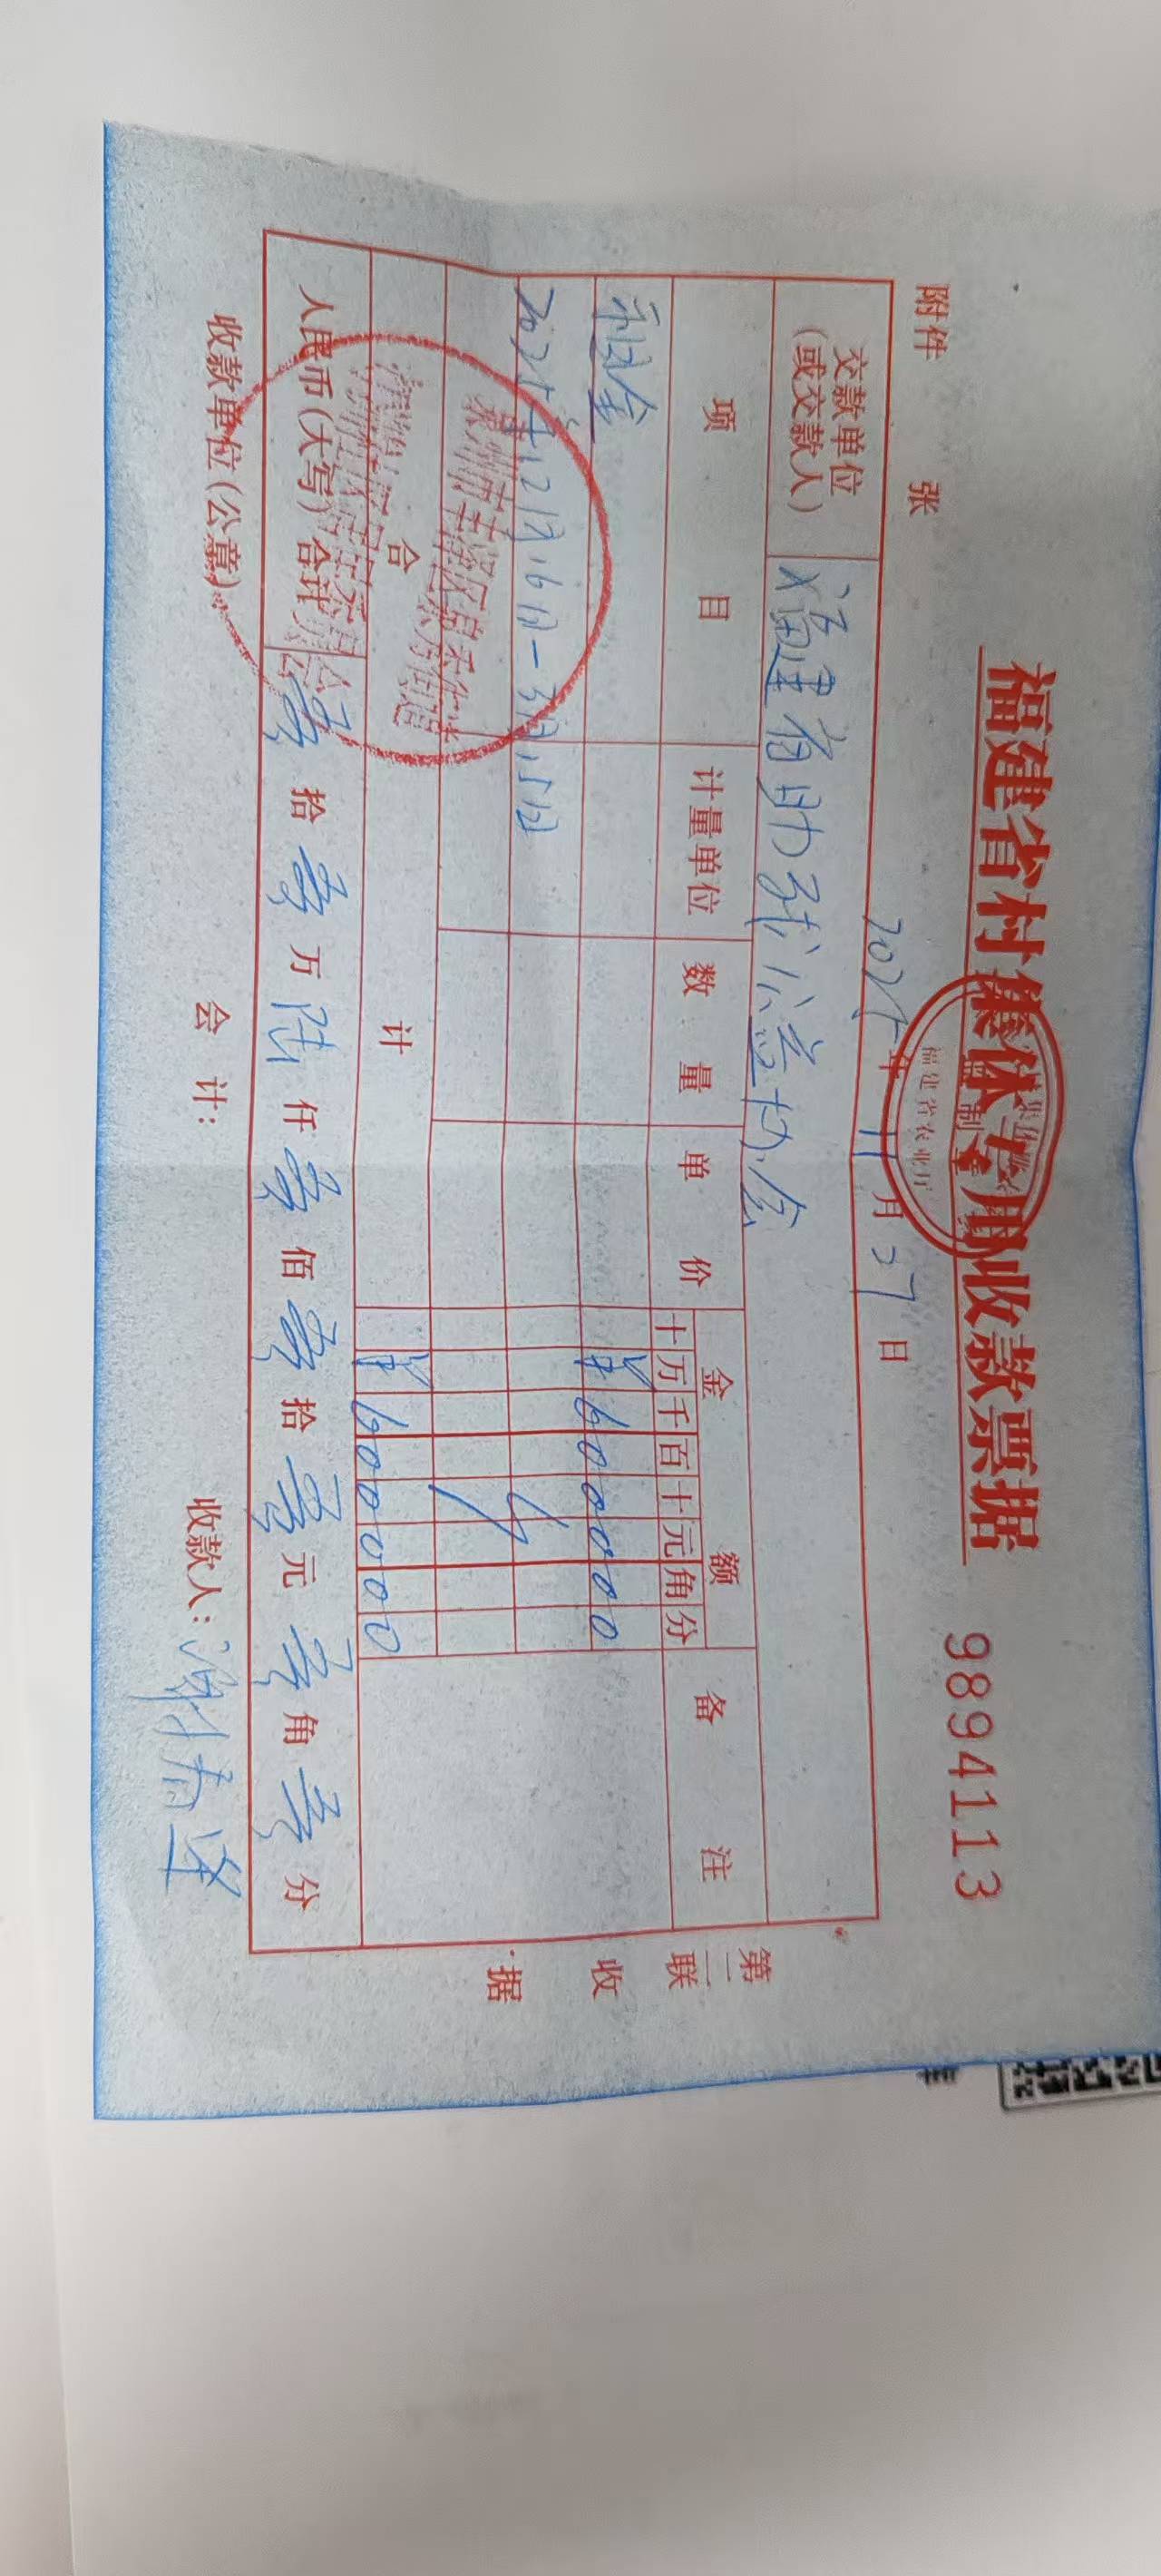 福建省村集体专用收款票据
9894113
福建省农业厅
监制章
附件 张
2025年11月27日
交款单位(或交款人) 福建省助残公益协会
项目 计量单位 数量 单价 金额 备注
十万千百十元角分
租金 ¥600000
2025年12月16日-3月15日
合计 ¥600000
人民币(大写)合计 零拾零万陆仟零佰零拾零元零角零分
收款单位(公章) 会计: 收款人:
第二联 收据